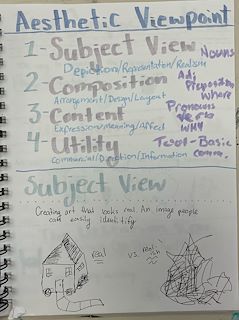 Aesthetic Viewpoint
1-Subject View Nouns
Depiction/Representation/Realism
2-Composition Adj Preposition
Arrangement/Design/Layout where
3-Content Pronouns verb
Expression/Meaning/Affect WHY
4-Utility Text-Basic
Commercial/Direction/Information comm.
Subject View
Creating art that looks real. An image people
can easily identify
real vs. real-ish